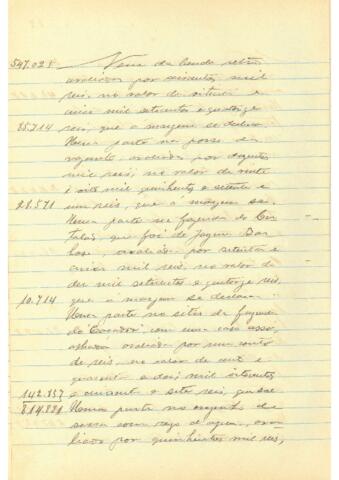 547.028 Uma da banda
avaliada por seiscentos mil
reis, no valor de oitenta e
cinco mil setecentos e quatorze
85.714 reis, que a margem se declara.
Uma parte na posse da
avaliada por duzentos
mil reis, no valor de vinte
e oito mil quinhentos e setenta e
28.571 um reis, que a margem sai.
Uma parte na fazenda do
que foi de Bar
bosa, avaliada por setenta e
cinco mil reis, no valor de
dez mil setecentos e quatorze reis,
10.714 que a margem se declara.
Uma parte no sitio da fazenda
do com uma casa asso
alhada avaliada por um conto
de reis, no valor de cento e
quarenta e dois mil oitocentos
142.857 e cincoenta e sete reis, que sai
814.884 Uma parte no engenho de
serra com rego d'agua, ava
liado por quinhentos mil reis,